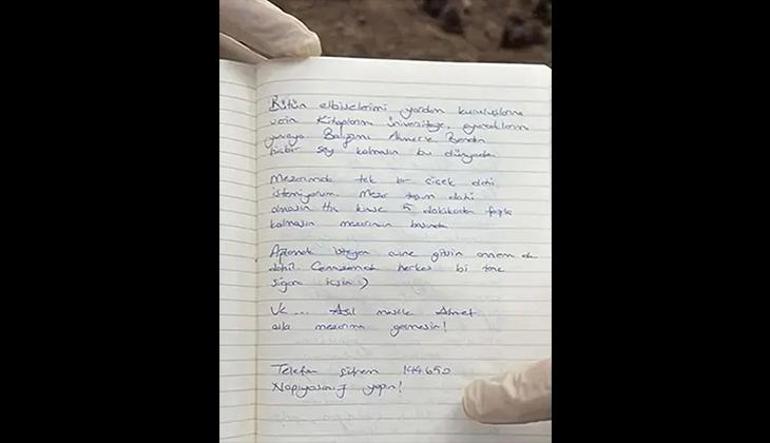 Bütün elbiselerimi yardım kuruluşlarına
verin Kitaplarımı üniversiteye, oyuncaklarımı
yuvaya Ahmet'e Benden
hiçbir şey kalmasın bu dünyada
Mezarımda tek bir çiçek dahi
istemiyorum. Mezar taşım dahi
olmasın Hiç kimse 5 dakikadan fazla
kalmasın mezarımın başında
Ağlamak isteyen evine gitsin annem de
dahil. Cenazemde herkes bi tane
sigara içsin :)
Ve... Asıl mesele Ahmet
asla mezarıma gelmesin!
Telefon şifrem 144650
Napıyosanız yapın!